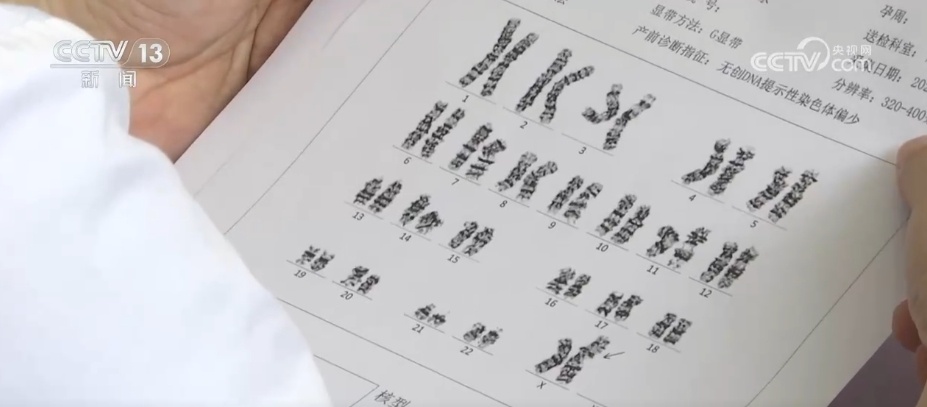 CCTV 13
新闻
央视网
CCTV.com
号:
孕周:
显带方法: G显带
送检科室:
产前诊断指征: 无创DNA提示性染色体偏少
日期: 202
分辨率: 320-400
1
2
3
4
5
6
7
8
9
10
11
12
13
14
15
16
17
18
19
20
21
22
X
核型